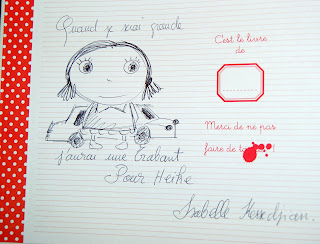 Quand je serai grande
C'est le livre
de
Merci de ne pas
faire de ta
!
j'aurai une Trabant
Pour Heike
Isabelle